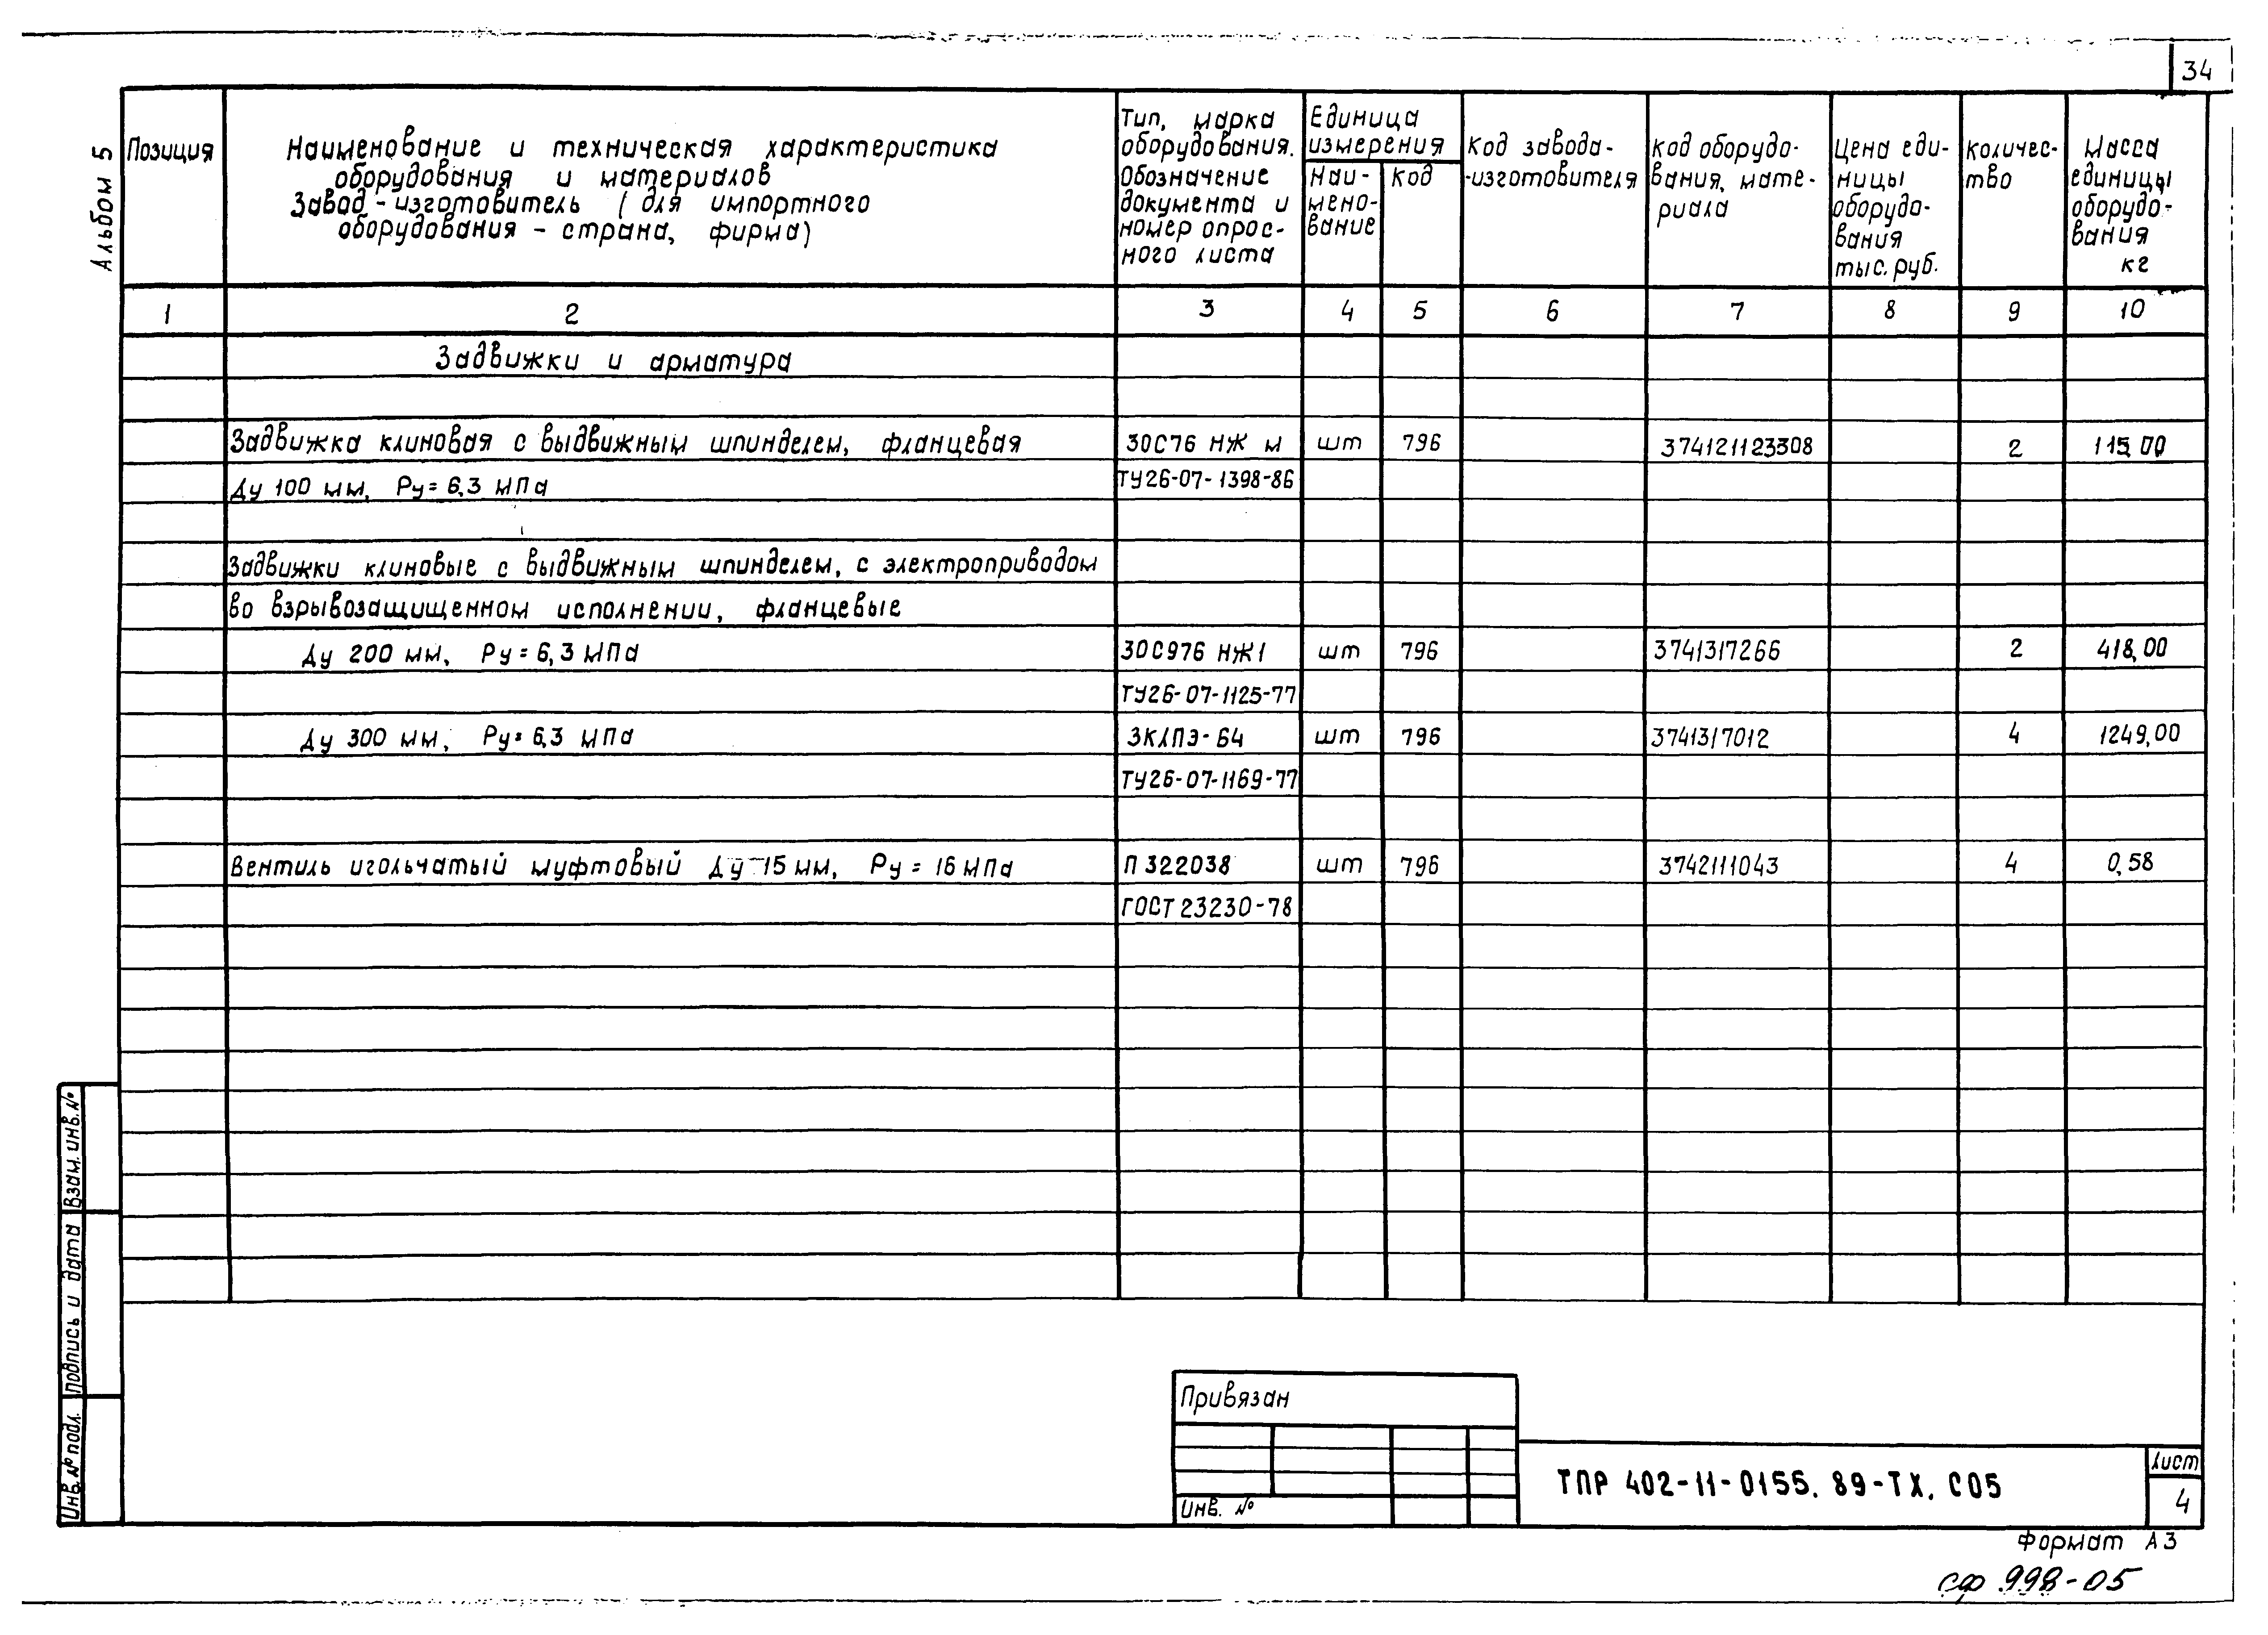 34
Альбом 5
Позиция
Наименование и техническая характеристика
оборудования и материалов
Завод-изготовитель (для импортного
оборудования - страна, фирма)
Тип, марка
оборудования.
Обозначение
документа и
номер опрос-
ного листа
Единица
измерения
Наи-
мено-
вание
Код
Код завода-
-изготовителя
Код оборудо-
вания, мате-
риала
Цена еди-
ницы
оборудо-
вания
тыс. руб.
Количес-
тво
Масса
единицы
оборудо-
вания
кг
1 2 3 4 5 6 7 8 9 10
Задвижки и арматура
Задвижка клиновая с выдвижным шпинделем, фланцевая 30С76 НЖ м шт 796 374121123308 2 115,00
Ду 100 мм, Ру = 6,3 МПа ТУ26-07-1398-86
Задвижки клиновые с выдвижным шпинделем, с электроприводом
во взрывозащищенном исполнении, фланцевые
Ду 200 мм, Ру = 6,3 МПа 30С976 НЖ1 шт 796 3741317266 2 418,00
ТУ26-07-1125-77
Ду 300 мм, Ру = 6,3 МПа ЗКЛПЭ-64 шт 796 3741317012 4 1249,00
ТУ26-07-1169-77
Вентиль игольчатый муфтовый Ду 15 мм, Ру = 16 МПа П 322038 шт 796 3742111043 4 0,58
ГОСТ 23230-78
Взам. инв. №
Подпись и дата
Инв. № подл.
Привязан
Инв. №
ТПР 402-11-0155.89-ТХ.СО5
Лист
4
Формат А3
сф 998-05